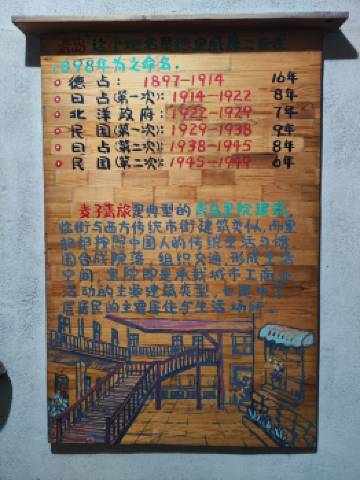 青岛这个地名是德皇威廉二世在
1898年为之命名.
德占: 1897-1914 16年
日占(第一次): 1914-1922 8年
北洋政府: 1922-1929 7年
民国(第一次): 1929-1938 9年
日占(第二次): 1938-1945 8年
民国(第二次): 1945-1949 6年
麦子青旅是典型的青岛里院建筑,
临街与西方传统市街建筑类似,而里
按照中国人的传统生活习惯,
围合成院落,组织交通,形成生活
空间,里院即是承载城市工商业
活动的主要建筑类型,
层居民的主要居住与生活场所.